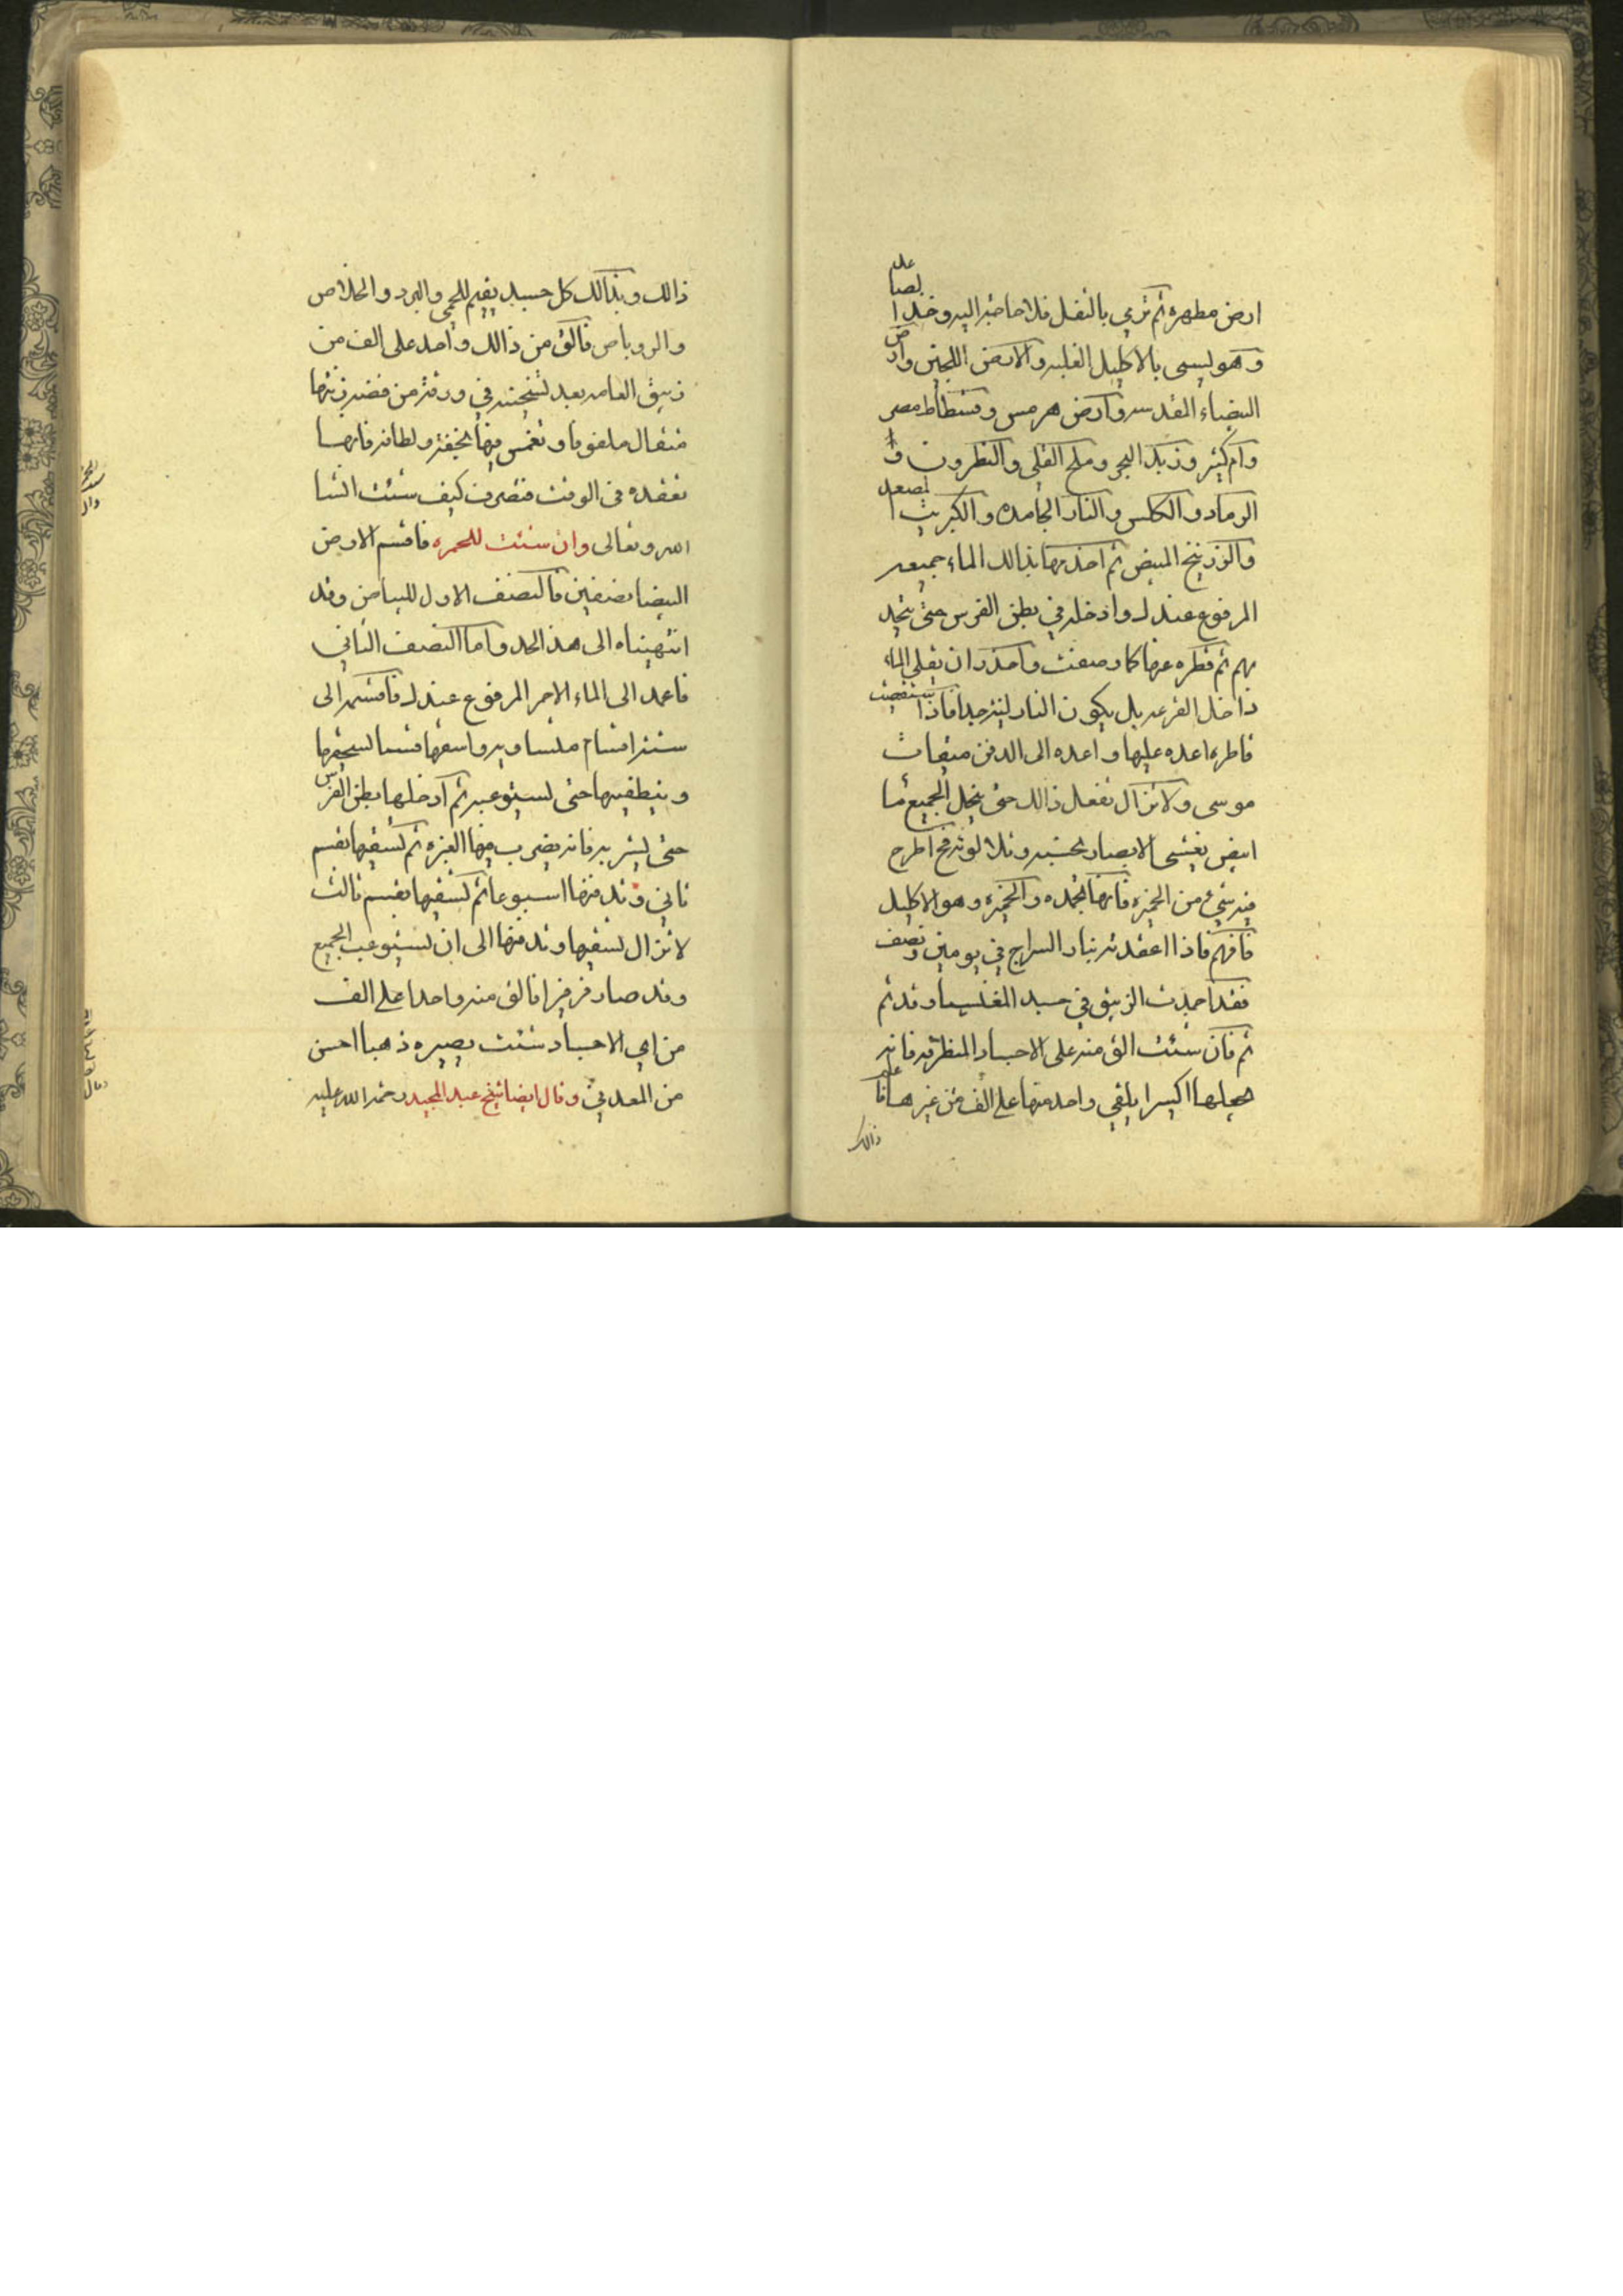 ارض مطهره ثم ترمي بالثفل فلا حاجة اليه وخذ الصاعد
وهو يسمى بالاكليل الغلبه والارض اللجين وارض
البيضاء المقدسه وارض هرمس وفسطاط مصر
وام كثير وزبد البحر وملح القلي والنطرون و
الرماد والكلس والنار الجامده والكبريت المصعد
والزرنيخ المبيض ثم اخذمها بذالك الماء جميعه
المرفوع عندك وادخله في بطن الفرس حتى يتحد
بهم ثم قطره عنها كما وصفت واحذر ان يغلي الماء
داخل القرعه بل يكون النار لينه جدا فاذا استقصيت
قاطره اعده عليها واعده الى الدفن ميقات
موسى ولا تزال تفعل ذالك حتى ينحل الجميع ما
ابيض يغشى الابصار بحسنه وتلالوئه فح اطرح
فيه شيء من الخميره فانها تجمده والخميره وهو الاكليل
فافهم فاذا اعقدته بنار السراج في يومين ونصف
فقد اجمدت الزيبق في جسد المغنيسيا وقد تم
ثم فان شئت الق منه على الاجساد المنطرقه فانه
يجعلها اكسيرا يلقي واحد منها على الف من غيرها فاعلم
ذالك
ذالك وبذالك كل جسد يقيم للحمي والبرد والخلاص
والروباص فالق من ذالك واحد على الف من
زيبق العامه بعد تسخينه في ورقة من فضه زنتها
مثقال ملفوفا وتغمس فيها بخفة ولطافه فانها
تعقده في الوقت فتصرف كيف شئت انشا
الله وتعالى وان شئت للحمره فاقسم الارض
البيضا نصفين فالنصف الاول للبياض وقد
انتهيناه الى هذ الحد واما النصف الثاني
فاعمد الى الماء الاحمر المرفوع عندك فاقسمه الى
ستة اقسام ملساويه واسقها قسما تسحقها
وينطفيها حتى تستوعبه ثم ادخلها بطن الفرس
حتى يشربه فانه يضرب فيها الغبره ثم تسقيها بقسم
ثاني وتدفنها اسبوعا ثم تسقيها بقسم ثالث
لا تزال تسقيها وتدفنها الى ان تستوعب الجميع
وقد صار فرفيرا فالق منه واحدا على الف
من اي الاجساد شئت يصيره ذهبا احسن
من المعدني وقال ايضا شيخ عبد المجيد رحمة الله عليه